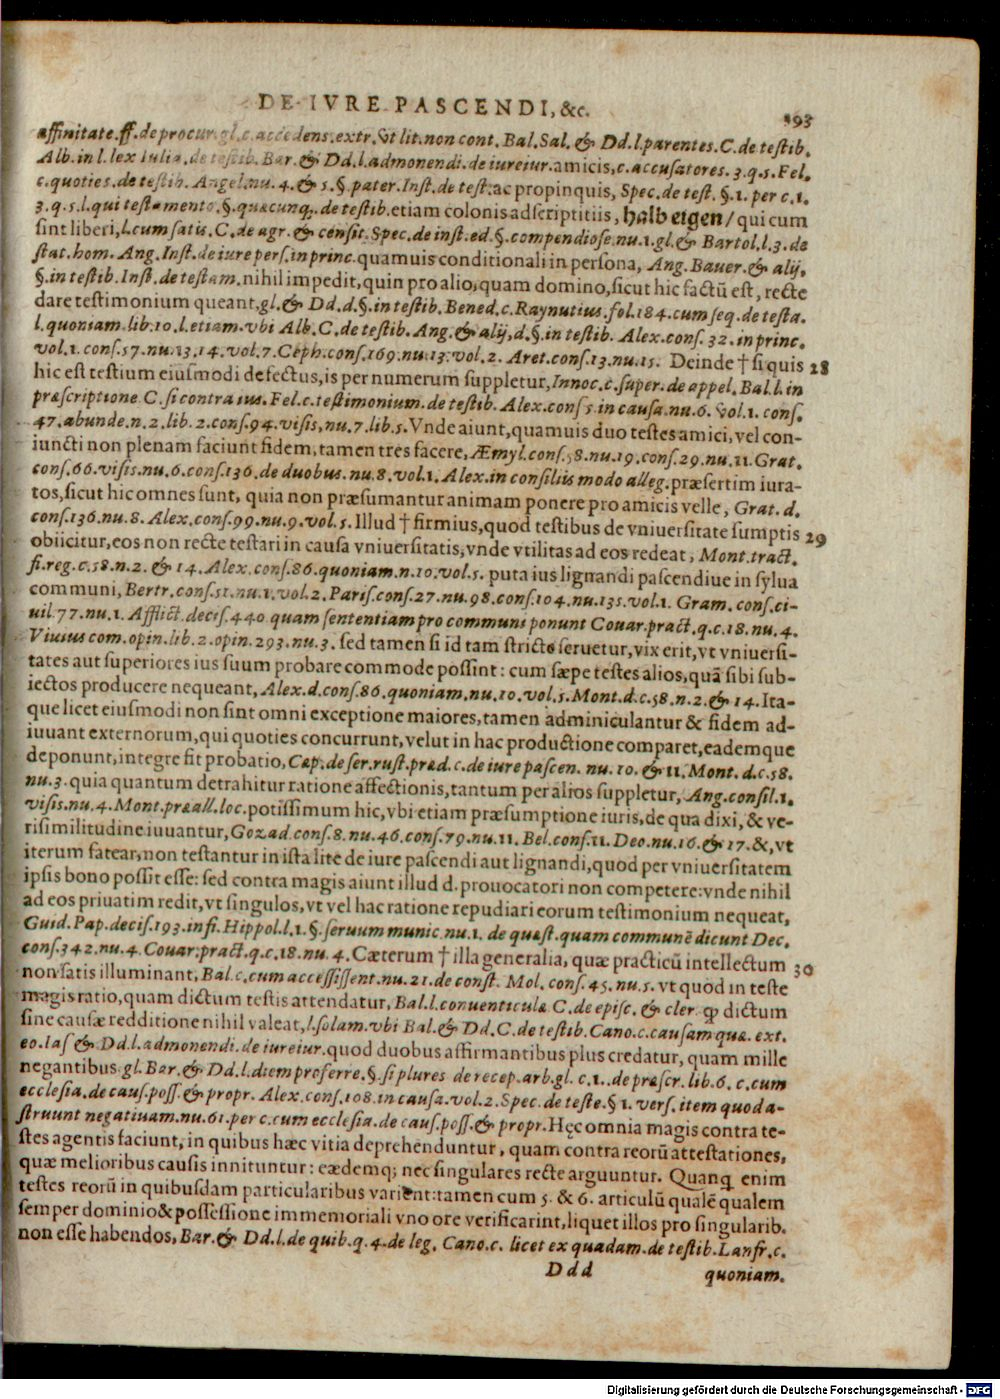 DE IVRE PASCENDI, &c. 193
affinitate.ff.de procur.gl.c.accedens.extr.vt lit.non cont. Bal. Sal. & Dd.l.parentes.C.de testib.
Alb.in l.lex Iulia.de testib. Bar.& Dd.l.admonendi.de iureiur.amicis,c.accusatores.3.q.5.Fel.
c.quoties.de testib. Angel.nu.4.& 5.§.pater.Inst.de test.ac propinquis, Spec.de test.§.1.per c.1.
3.q.5.l.qui testamento.§.quæcunq;.de testib.etiam colonis adscriptitiis, halb eigen/ qui cum
sint liberi,l.cum satis.C.de agr.& censit.Spec.de inst.ed.§.compendiose.nu.1.gl.& Bartol.l.3.de
stat.hom. Ang.Inst.de iure pers.in princ.quamuis conditionali in persona, Ang.Bauer.& alij,
§.in testib.Inst.de testam.nihil impedit,quin pro alio,quam domino,sicut hic factū est, recte
dare testimonium queant,gl.& Dd.d.§.in testib.Bened.c.Raynutius.fol.184.cum seq.de testa.
l.quoniam.lib.10.l.etiam.vbi Alb.C.de testib. Ang.& alij,d.§.in testib. Alex.cons.32.in princ.
vol.1.cons.57.nu.13.14.vol.7.Ceph.cons.169.nu.13.vol.2. Aret.cons.13.nu.15. Deinde † si quis 28
hic est testium eiusmodi defectus,is per numerum suppletur,Innoc.c.super.de appel.Bal.l.in
præscriptione.C.si contra ius.Fel.c.testimonium.de testib.Alex.cons.5.in causa.nu.6.vol.1.cons.
47.abunde.n.2.lib.2.cons.94.visis,nu.7.lib.5.Vnde aiunt,quamuis duo testes amici, vel con-
iuncti non plenam faciunt fidem, tamen tres facere, Æmyl.cons.58.nu.19.cons.29.nu.11.Grat.
cons.66.visis.nu.6.cons.136.de duobus.nu.8.vol.1. Alex.in consiliis modo alleg.præsertim iura-
tos,sicut hic omnes sunt, quia non præsumantur animam ponere pro amicis velle, Grat.d.
cons.136.nu.8. Alex.cons.99.nu.9.vol.5.Illud † firmius,quod testibus de vniuersitate sumptis 29
obiicitur,eos non recte testari in causa vniuersitatis,vnde vtilitas ad eos redeat, Mont.tract.
fi.reg.c.58.n.2. & 14. Alex.cons.86.quoniam.n.10.vol.5. puta ius lignandi pascendiue in sylua
communi, Bertr.cons.51.nu.1.vol.2.Paris.cons.27.nu.98.cons.104.nu.135.vol.1. Gram.cons.ci-
uil.77.nu.1. Afflict.decis.440.quam sententiam pro communi ponunt Couar.pract.q.c.18.nu.4.
Viuius com.opin.lib.2.opin.293.nu.3. sed tamen si id tam stricte seruetur, vix erit, vt vniuersi-
tates aut superiores ius suum probare commode possint: cum sæpe testes alios,quā sibi sub-
iectos producere nequeant, Alex.d.cons.86.quoniam.nu.10.vol.5.Mont.d.c.58.n.2.& 14. Ita-
que licet eiusmodi non sint omni exceptione maiores, tamen adminiculantur & fidem ad-
iuuant externorum, qui quoties concurrunt,velut in hac productione comparet,eademque
deponunt,integre fit probatio, Cæp.de ser.rust.præd.c.de iure pascen. nu.10.& 11.Mont.d.c.58.
nu.3.quia quantum detrahitur ratione affectionis, tantum per alios suppletur, Ang.consil.1.
visis.nu.4.Mont.præall.loc.potissimum hic,vbi etiam præsumptione iuris,de qua dixi, & ve-
risimilitudine iuuantur, Gozad.cons.8.nu.46.cons.79.nu.11. Bel.cons.11.Deo.nu.16.& 17.&,vt
iterum fatear,non testantur in ista lite de iure pascendi aut lignandi,quod per vniuersitatem
ipsis bono possit esse: sed contra magis aiunt illud d. prouocatori non competere: vnde nihil
ad eos priuatim redit,vt singulos, vt vel hac ratione repudiari eorum testimonium nequeat,
Guid.Pap.decis.193.infi.Hippol.l.1.§.seruum munic.nu.1. de quæst.quam communē dicunt Dec.
cons.342.nu.4.Couar.pract.q.c.18.nu.4. Cæterum † illa generalia, quæ practicū intellectum 30
non satis illuminant, Bal.c.cum accessissent.nu.21.de const. Mol.cons.45.nu.5. vt quod in teste
magis ratio, quam dictum testis attendatur, Bal.l.conuenticula.C.de episc. & cler. ꝙ dictum
sine causæ redditione nihil valeat,l.solam.vbi Bal.& Dd.C.de testib.Cano.c.causam quæ.ext.
eo.Ias & Dd.l.admonendi.de iureiur.quod duobus affirmantibus plus credatur, quam mille
negantibus gl. Bar.& Dd.l.diem proferre.§.si plures de recep.arb.gl. c.1. de præscr.lib.6. c.cum
ecclesia.de caus.poss.& propr. Alex.cons.108.in causa.vol.2.Spec.de teste.§ 1.vers.item quod a-
struunt negatiuam.nu.61.per c.cum ecclesia.de caus.poss.& propr.Hęc omnia magis contra te-
stes agentis faciunt, in quibus hæc vitia deprehenduntur, quam contra reorū attestationes,
quæ melioribus causis innituntur: eædemq; nec singulares recte arguuntur. Quanq̄ enim
testes reorū in quibusdam particularibus varient: tamen cum 5. & 6. articulū qualē qualem
semper dominio & possessione immemoriali vno ore verificarint, liquet illos pro singularib.
non esse habendos, Bar. & Dd.l.de quib.q.4.de leg. Cano.c. licet ex quadam.de testib.Lanfr.c.
Ddd quoniam.
Digitalisierung gefördert durch die Deutsche Forschungsgemeinschaft - DFG